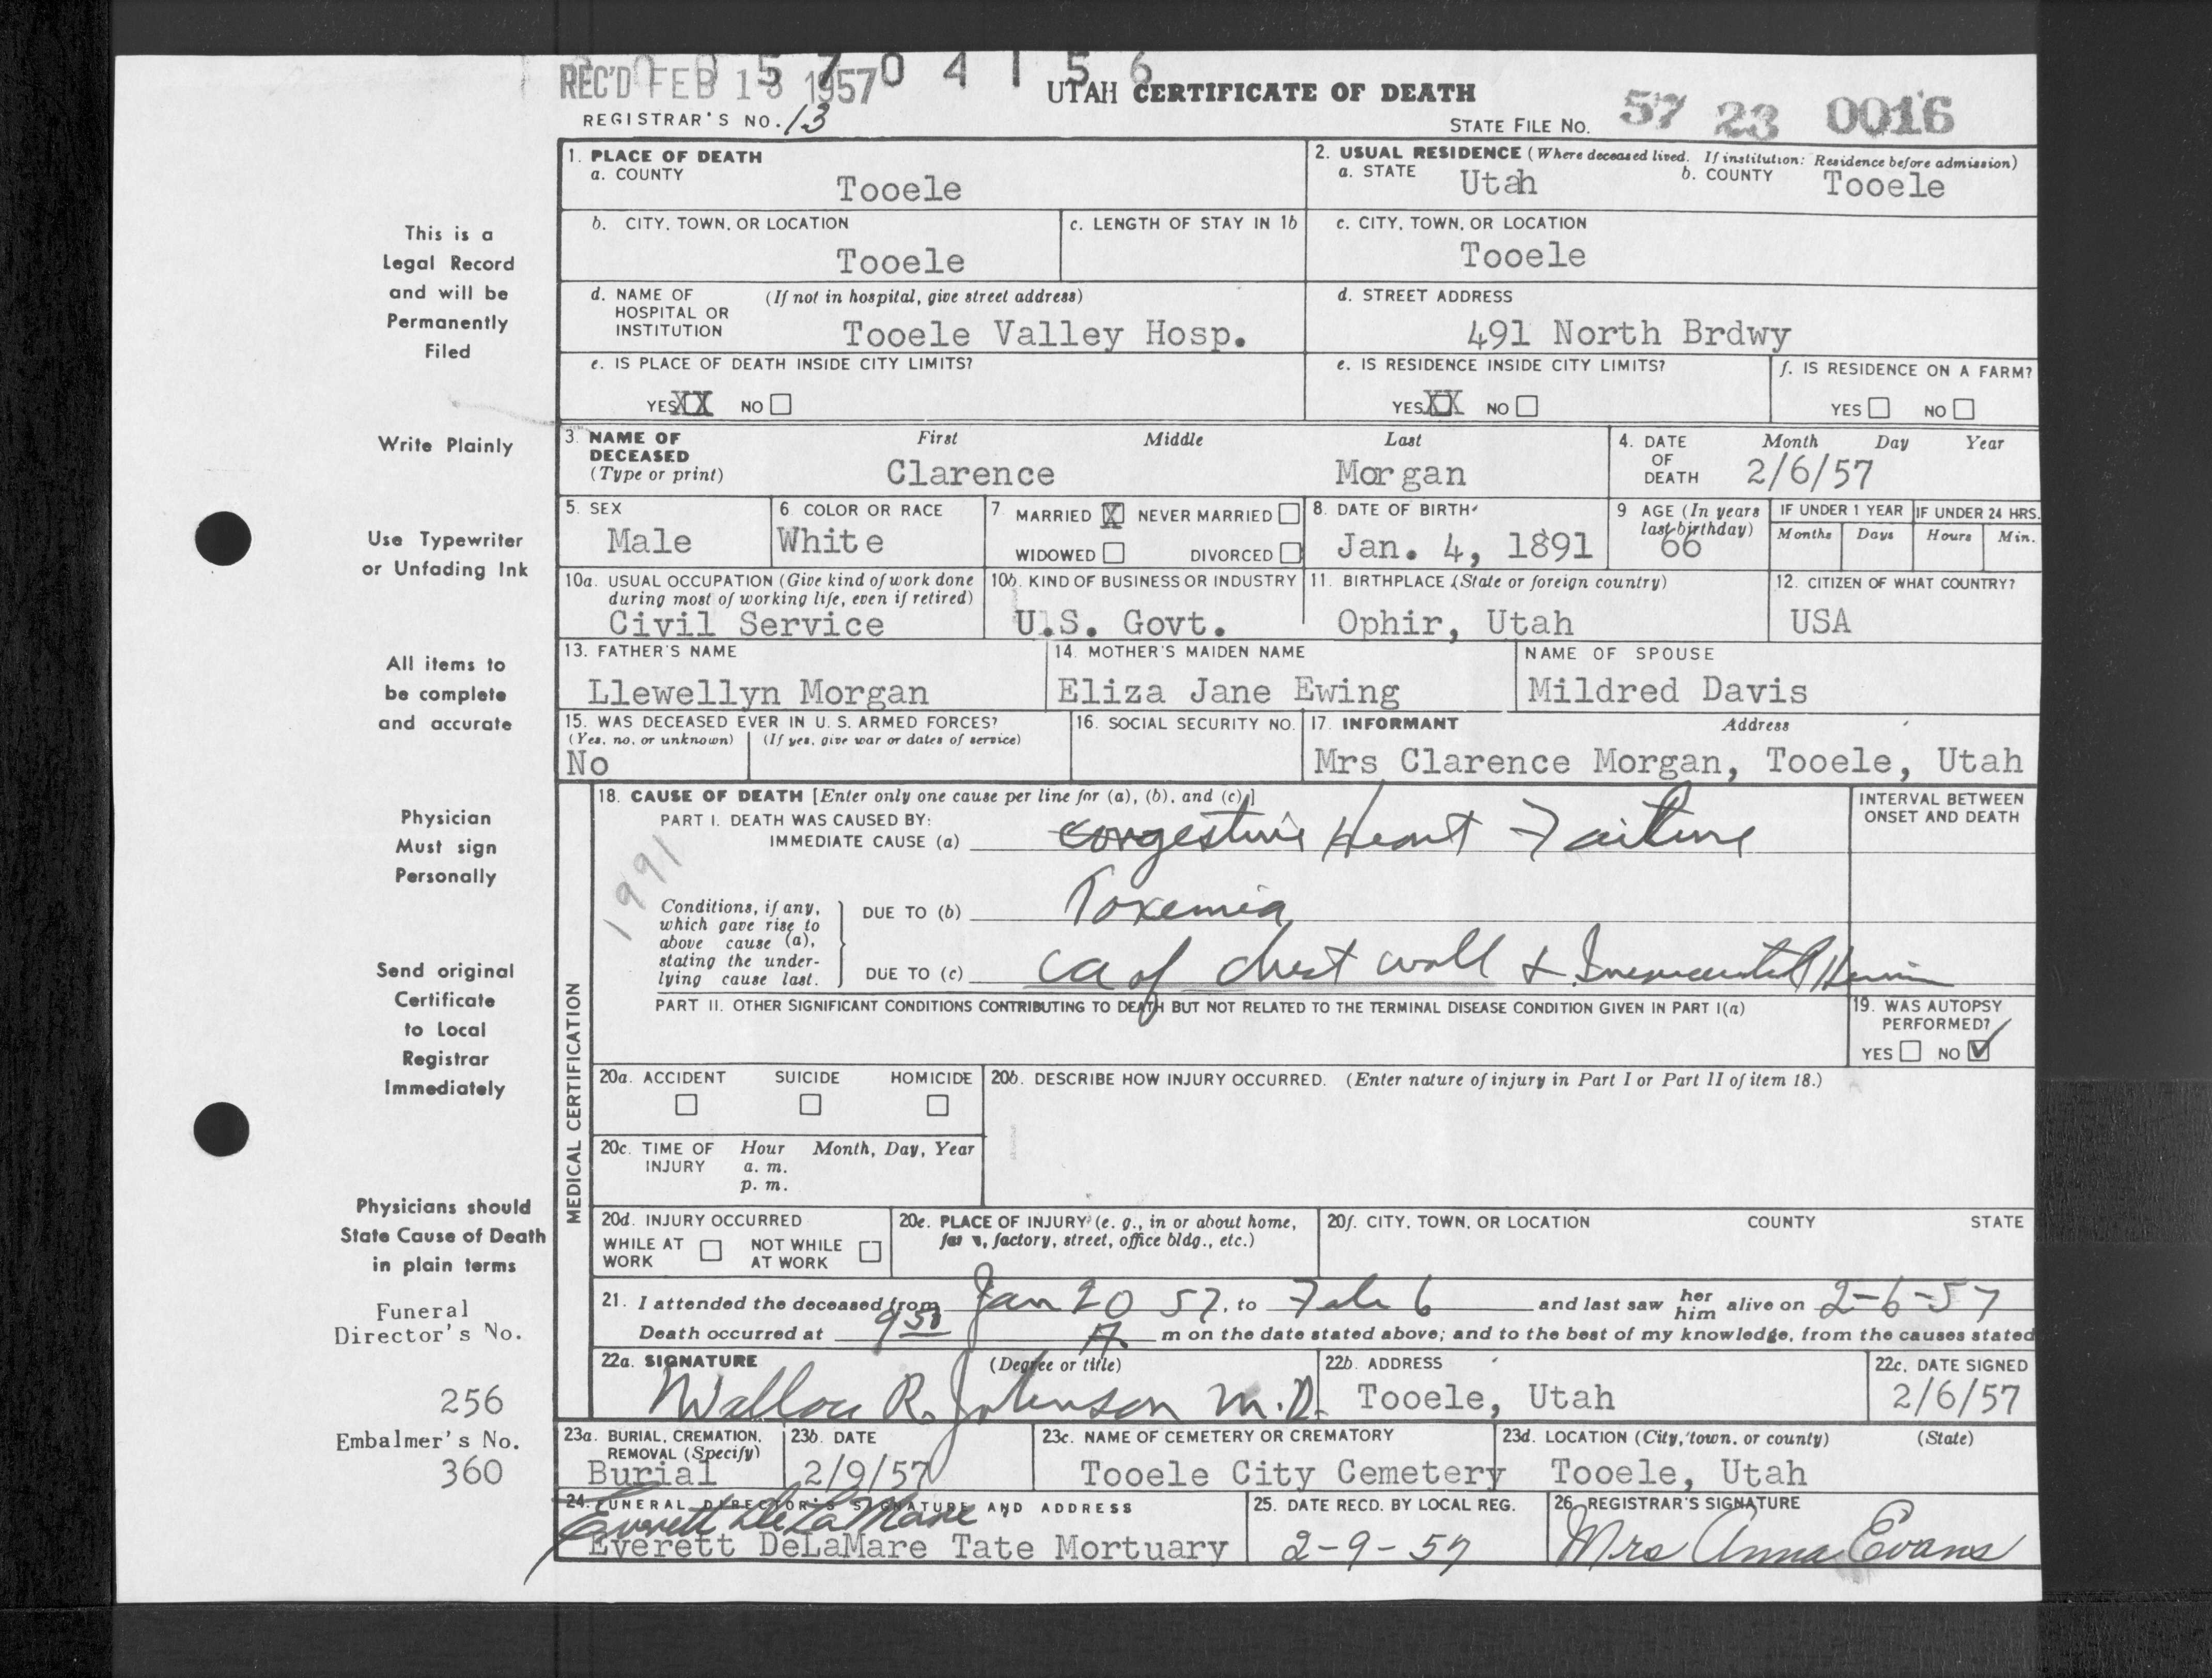 REC'D FEB 13 1957 0 4 1 5 6
UTAH CERTIFICATE OF DEATH
REGISTRAR'S NO. 13
STATE FILE NO. 57 23 0016
1. PLACE OF DEATH
a. COUNTY
Tooele
2. USUAL RESIDENCE (Where deceased lived. If institution: Residence before admission)
a. STATE Utah b. COUNTY Tooele
b. CITY, TOWN, OR LOCATION
Tooele
c. LENGTH OF STAY IN 1b
c. CITY, TOWN, OR LOCATION
Tooele
d. NAME OF HOSPITAL OR INSTITUTION (If not in hospital, give street address)
Tooele Valley Hosp.
d. STREET ADDRESS
491 North Brdwy
e. IS PLACE OF DEATH INSIDE CITY LIMITS?
YES XX NO
e. IS RESIDENCE INSIDE CITY LIMITS?
YES XX NO
f. IS RESIDENCE ON A FARM?
YES NO
3. NAME OF DECEASED (Type or print)
First Middle Last
Clarence Morgan
4. DATE OF DEATH Month Day Year
2/6/57
5. SEX
Male
6. COLOR OR RACE
White
7. MARRIED X NEVER MARRIED
WIDOWED DIVORCED
8. DATE OF BIRTH
Jan. 4, 1891
9 AGE (In years last birthday)
66
IF UNDER 1 YEAR
Months Days
IF UNDER 24 HRS.
Hours Min.
10a. USUAL OCCUPATION (Give kind of work done during most of working life, even if retired)
Civil Service
10b. KIND OF BUSINESS OR INDUSTRY
U.S. Govt.
11. BIRTHPLACE (State or foreign country)
Ophir, Utah
12. CITIZEN OF WHAT COUNTRY?
USA
13. FATHER'S NAME
Llewellyn Morgan
14. MOTHER'S MAIDEN NAME
Eliza Jane Ewing
NAME OF SPOUSE
Mildred Davis
15. WAS DECEASED EVER IN U. S. ARMED FORCES?
(Yes, no, or unknown) (If yes, give war or dates of service)
No
16. SOCIAL SECURITY NO.
17. INFORMANT Address
Mrs Clarence Morgan, Tooele, Utah
MEDICAL CERTIFICATION
18. CAUSE OF DEATH [Enter only one cause per line for (a), (b), and (c).]
PART I. DEATH WAS CAUSED BY:
IMMEDIATE CAUSE (a) Congestive Heart Failure
INTERVAL BETWEEN ONSET AND DEATH
1991
Conditions, if any, which gave rise to above cause (a), stating the underlying cause last.
DUE TO (b) Toxemia
DUE TO (c) Ca of chest wall &
PART II. OTHER SIGNIFICANT CONDITIONS CONTRIBUTING TO DEATH BUT NOT RELATED TO THE TERMINAL DISEASE CONDITION GIVEN IN PART I(a)
19. WAS AUTOPSY PERFORMED?
YES NO ✓
20a. ACCIDENT SUICIDE HOMICIDE
20b. DESCRIBE HOW INJURY OCCURRED. (Enter nature of injury in Part I or Part II of item 18.)
20c. TIME OF INJURY Hour Month, Day, Year
a. m.
p. m.
20d. INJURY OCCURRED
WHILE AT WORK NOT WHILE AT WORK
20e. PLACE OF INJURY (e. g., in or about home, farm, factory, street, office bldg., etc.)
20f. CITY, TOWN, OR LOCATION COUNTY STATE
21. I attended the deceased from Jan 20 57, to Feb 6 and last saw her him alive on 2-6-57
Death occurred at 9 50 A m on the date stated above; and to the best of my knowledge, from the causes stated
22a. SIGNATURE (Degree or title)
R. Johnson M.D.
22b. ADDRESS
Tooele, Utah
22c. DATE SIGNED
2/6/57
23a. BURIAL, CREMATION, REMOVAL (Specify)
Burial
23b. DATE
2/9/57
23c. NAME OF CEMETERY OR CREMATORY
Tooele City Cemetery
23d. LOCATION (City, town, or county) (State)
Tooele, Utah
24. FUNERAL DIRECTOR'S SIGNATURE AND ADDRESS
Everett DeLaMare
Everett DeLaMare Tate Mortuary
25. DATE RECD. BY LOCAL REG.
2-9-57
26. REGISTRAR'S SIGNATURE
Mrs Anna Evans
This is a
Legal Record
and will be
Permanently
Filed
Write Plainly
Use Typewriter
or Unfading Ink
All items to
be complete
and accurate
Physician
Must sign
Personally
Send original
Certificate
to Local
Registrar
Immediately
Physicians should
State Cause of Death
in plain terms
Funeral
Director's No.
256
Embalmer's No.
360